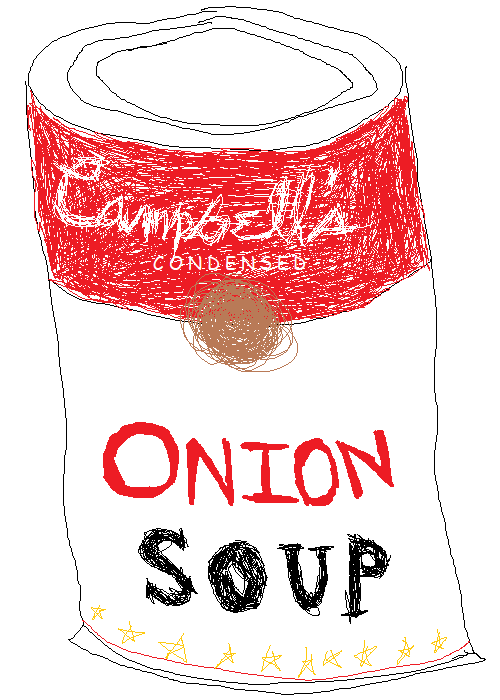 Campbell's
CONDENSED
ONION
SOUP